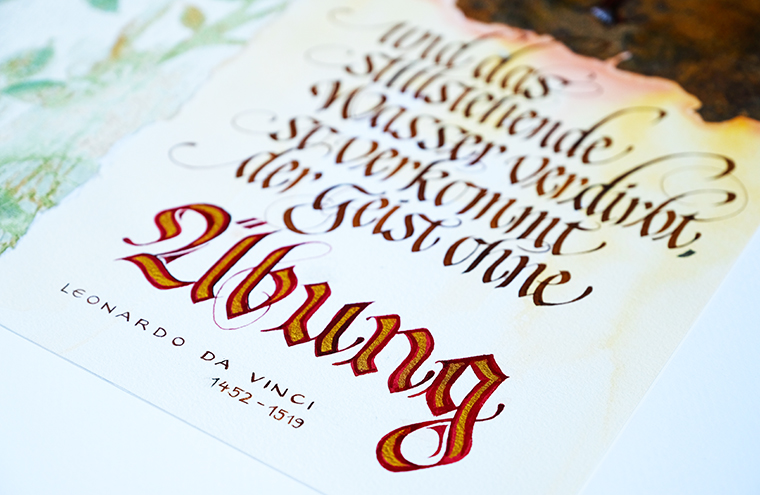 und das
stillstehende
Wasser verdirbt,
so verkommt
der Geist ohne
Übung
LEONARDO DA VINCI
1452-1519